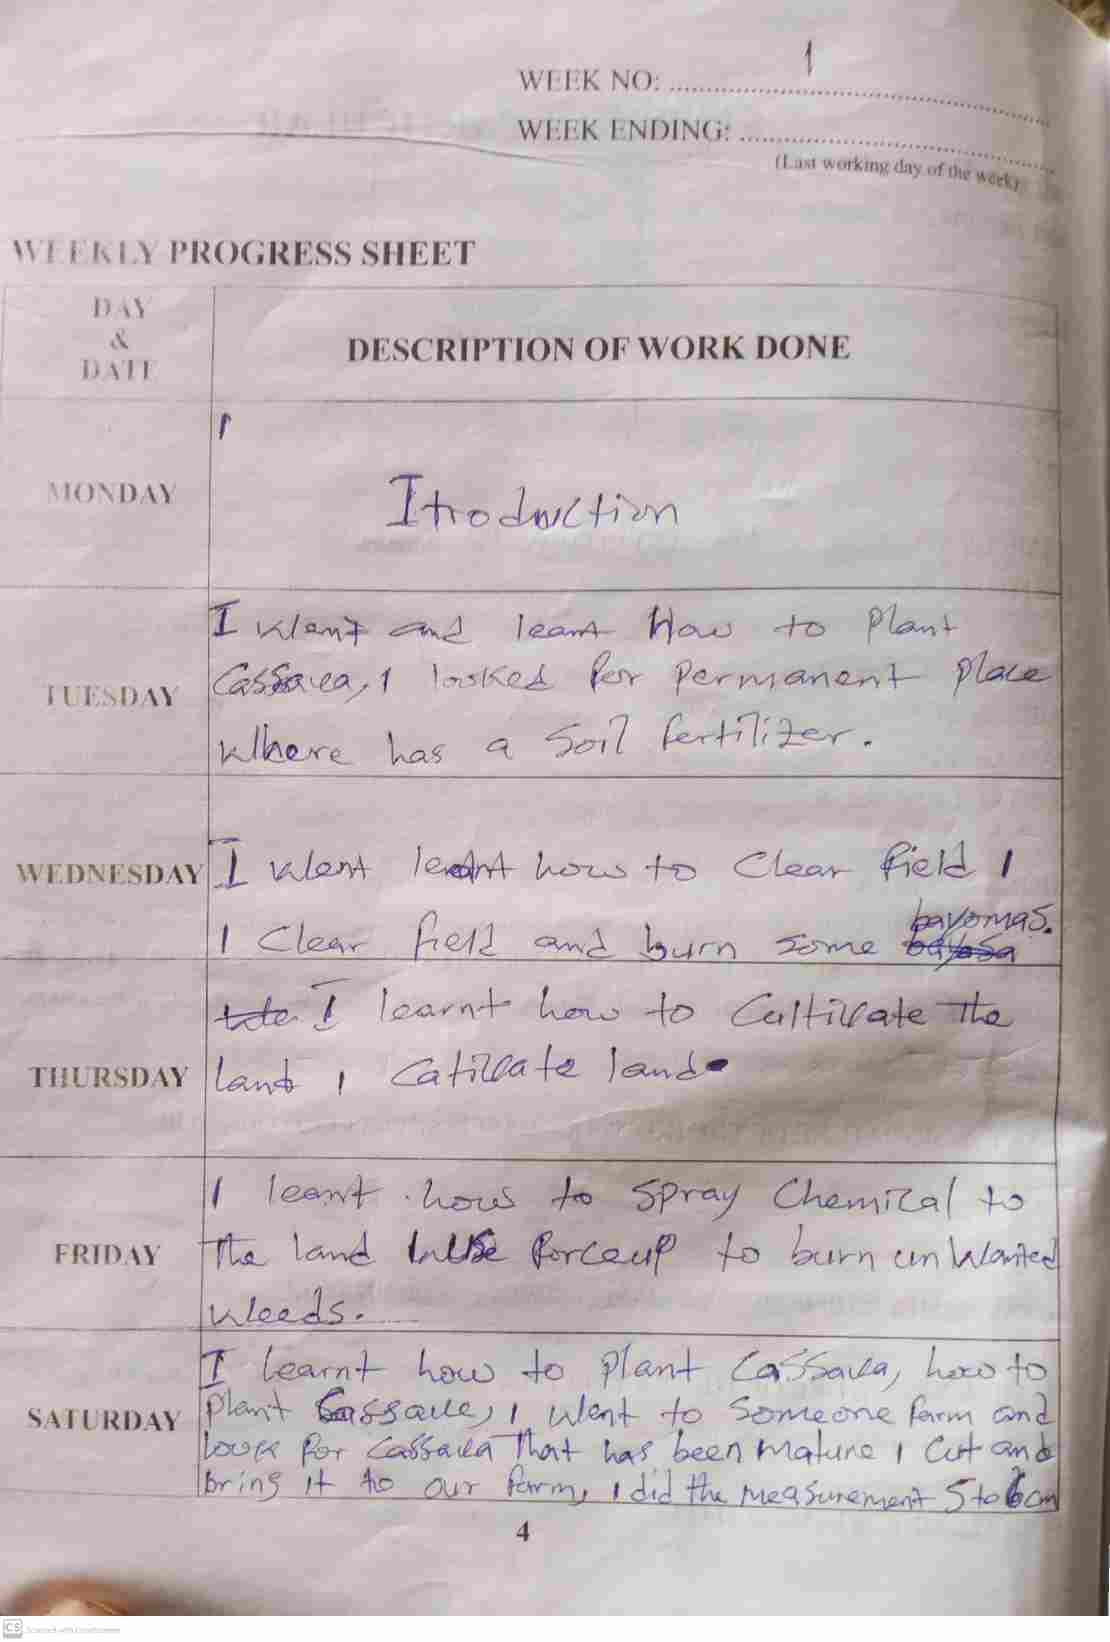 WEEK NO: 1
WEEK ENDING:
(Last working day of the week)
WEEKLY PROGRESS SHEET
DAY
&
DATE
DESCRIPTION OF WORK DONE
MONDAY
Itroduction
TUESDAY
I went and leant How to plant
Cassava, I looked for permanent place
Where has a Soil fertilizer.
WEDNESDAY
I went learnt how to Clear field I
I Clear field and burn some bayomas.
THURSDAY
I learnt how to Cultivate The
land I Cativate land
FRIDAY
I leant how to spray Chemical to
The land use forceup to burn unwanted
weeds.
SATURDAY
I learnt how to plant Cassava, how to
plant Cassava, I went to someone farm and
look for cassava That has been mature I cut and
bring it to our farm, I did the measurement 5 to 6cm
4
CS Scanned with CamScanner